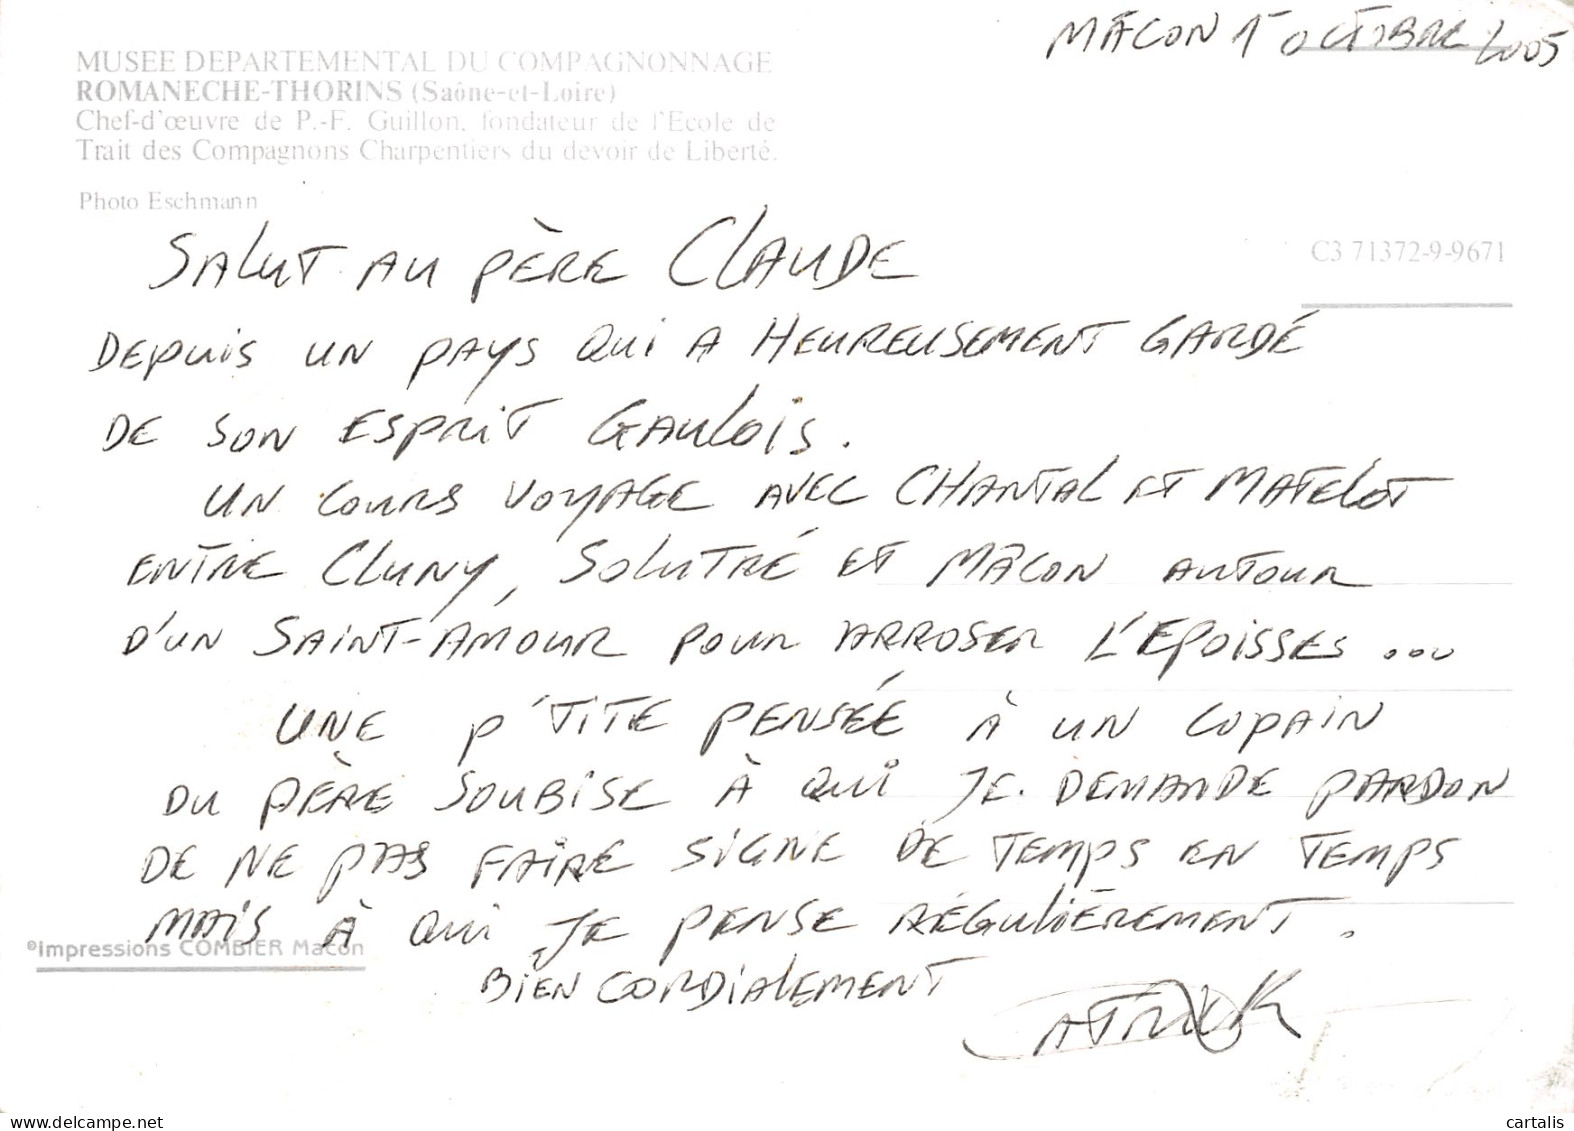 MÂCON 1er OCTOBRE 2005
MUSEE DEPARTEMENTAL DU COMPAGNONNAGE
ROMANECHE-THORINS (Saône-et-Loire)
Chef-d'œuvre de P.-F. Guillon, fondateur de l'Ecole de
Trait des Compagnons Charpentiers du devoir de Liberté.
Photo Eschmann
C3 71372-9-9671
SALUT AU PÈRE CLAUDE
DEPUIS UN PAYS QUI A HEUREUSEMENT GARDÉ
DE SON ESPRIT GAULOIS.
UN COURS VOYAGE AVEC CHANTAL ET MATELOT
ENTRE CLUNY, SOLUTRÉ ET MÂCON AUTOUR
D'UN SAINT-AMOUR POUR ARROSER L'EPOISSES...
UNE P'TITE PENSÉE À UN COPAIN
DU PÈRE SOUBISE À QUI JE DEMANDE PARDON
DE NE PAS FAIRE SIGNE DE TEMPS EN TEMPS
MAIS À QUI JE PENSE RÉGULIÈREMENT.
©Impressions COMBIER Macon
BIEN CORDIALEMENT
PATRICK
cartalis